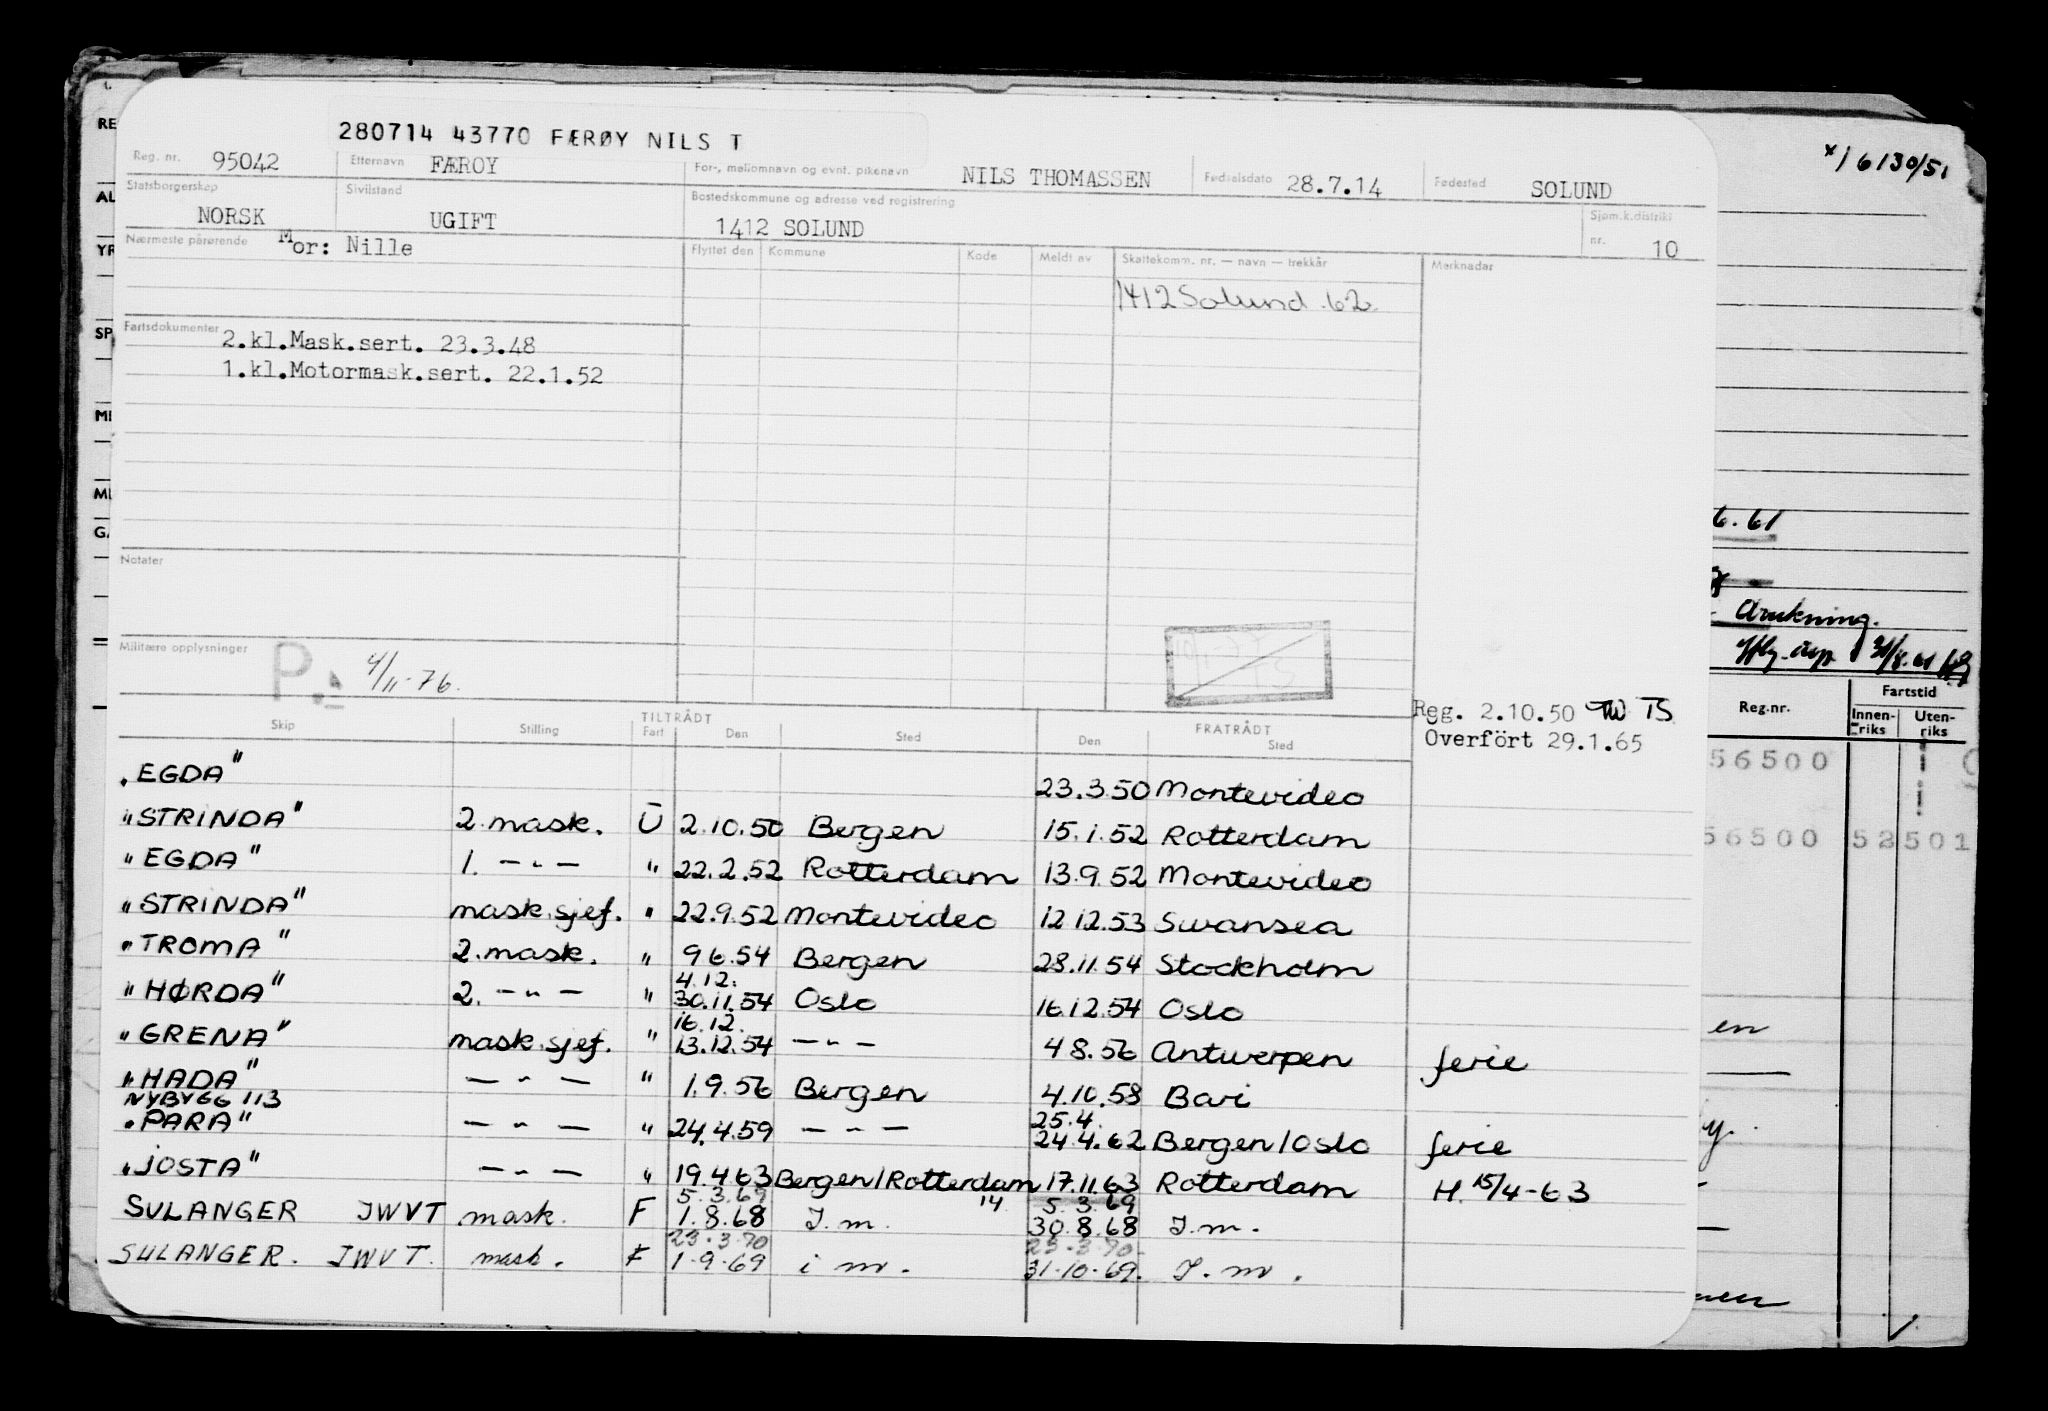 280714 43770 FÆRØY NILS T
Reg. nr. 95042 Etternavn FÆRØY For-, mellomnavn og evnt. pikenavn NILS THOMASSEN Fødselsdato 28.7.14 Fødested SOLUND
Statsborgerskap NORSK Sivilstand UGIFT Bostedskommune og adresse ved registrering 1412 SOLUND Sjøm.k.distrikt nr. 10
Nærmeste pårørende Mor: Nille Flyttet den Kommune Kode Meldt av Skattekomm. nr. — navn — trekkår Merknader
1412 Solund .62.
Fartsdokumenter 2.kl.Mask.sert. 23.3.48
1.kl.Motormask.sert. 22.1.52
Notater
Militære opplysninger P. 4/11-76.
Reg. 2.10.50 TS
Overfört 29.1.65
TILTRÅDT FRATRÅDT
Skip Stilling Fart Den Sted Den Sted
"EGDA" 23.3.50 Montevideo
"STRINDA" 2. mask. U 2.10.50 Bergen 15.1.52 Rotterdam
"EGDA" 1. — " — " 22.2.52 Rotterdam 13.9.52 Montevideo
"STRINDA" mask.sjef. " 22.9.52 Montevideo 12.12.53 Swansea
"TROMA" 2. mask. " 9.6.54 Bergen 28.11.54 Stockholm
4.12.
"HØRDA" 2. — " — " 30.11.54 Oslo 16.12.54 Oslo
16.12.
"GRENA" mask.sjef. " 13.12.54 — " — 4.8.56 Antwerpen ferie
"HADA" — " — " 1.9.56 Bergen 4.10.58 Bari
NYBYGG 113 25.4.
"PARA" — " — " 24.4.59 — " — 24.4.62 Bergen/Oslo ferie
"JOSTA" — " — " 19.4.63 Bergen/Rotterdam 17.11.63 Rotterdam H. 15/4-63
5.3.69 14 5.3.69
SULANGER JWVT mask. F 1.8.68 I.m. 30.8.68 I.m.
23.3.70 23.3.70
SULANGER. JWVT. mask. F 1.9.69 i m. 31.10.69. I.m.
x/ 6130/51
6.61
Fartstid
Reg.nr. Innen-riks Uten-riks
56500
56500 52501
en